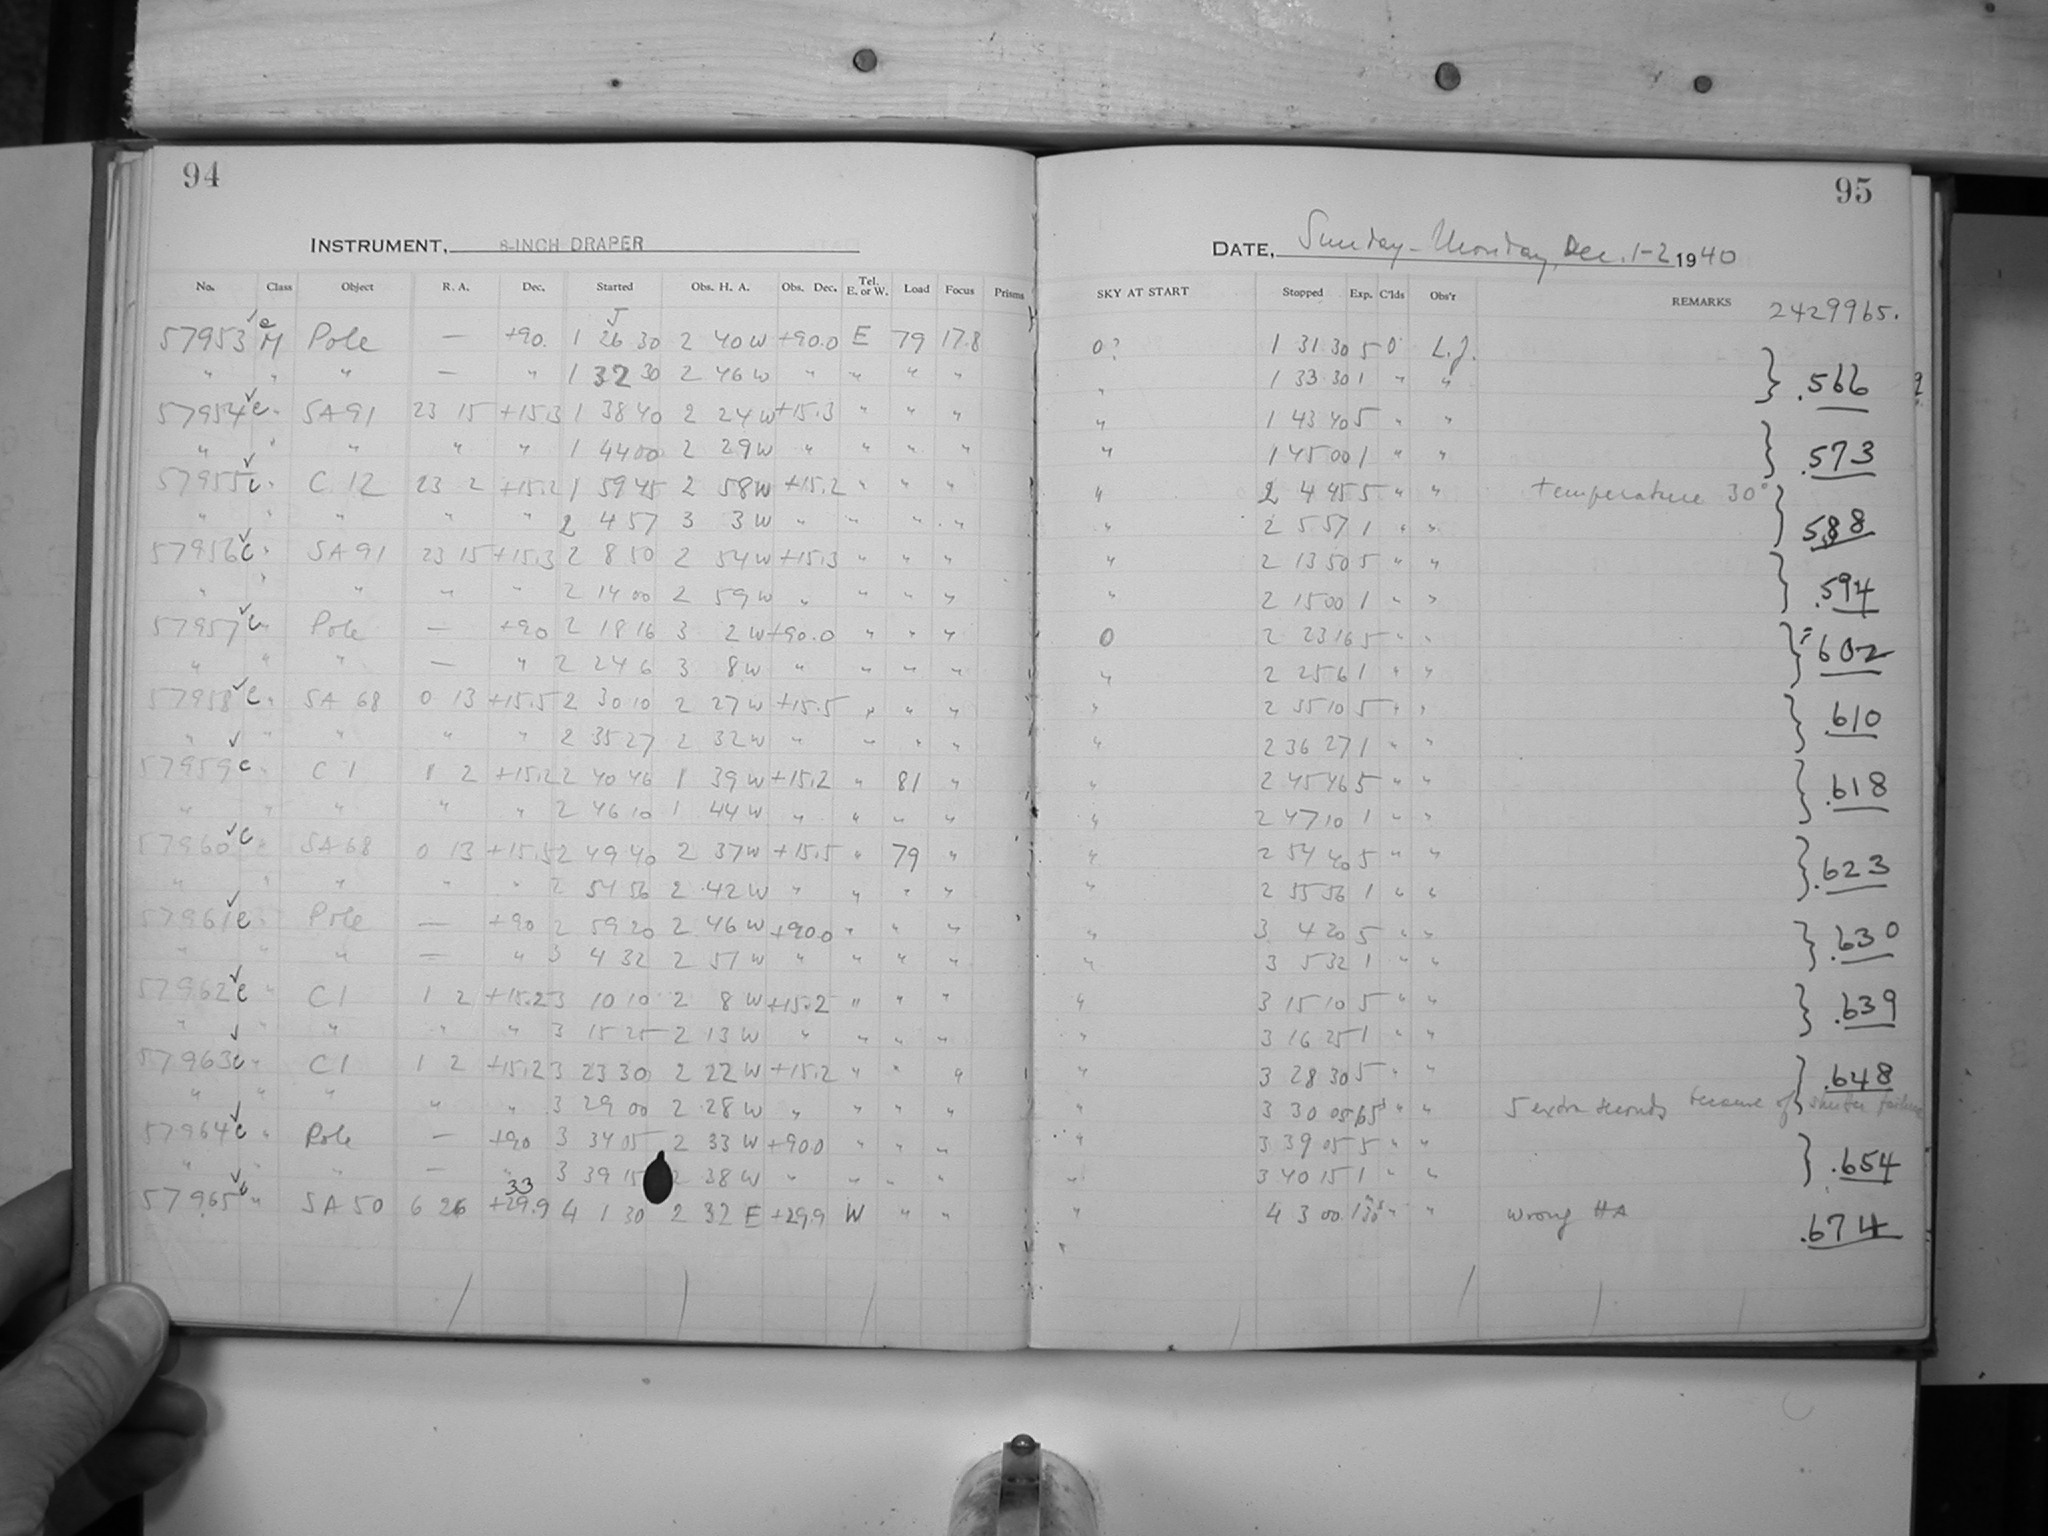 94
INSTRUMENT, 8-INCH DRAPER
No. Class Object R. A. Dec. Started Obs. H. A. Obs. Dec. Tel. E. or W. Load Focus Prisms
57953 e M Pole — +90. 1 26 30 2 40 W +90.0 E 79 17.8
" " " — " 1 32 30 2 46 W " " " "
57954 c " SA 91 23 15 +15.3 1 38 40 2 24 W +15.3 " " "
" " " " " 1 44 00 2 29 W " " " "
57955 c " C 12 23 2 +15.2 1 59 45 2 58 W +15.2 " " "
" " " " " 2 4 57 3 3 W " " " "
57956 c " SA 91 23 15 +15.3 2 8 50 2 54 W +15.3 " " "
" " " " " 2 14 00 2 59 W " " " "
57957 c " Pole — +90 2 18 16 3 2 W +90.0 " " "
" " " — " 2 24 6 3 8 W " " " "
57958 c " SA 68 0 13 +15.5 2 30 10 2 27 W +15.5 " " "
" " " " " 2 35 27 2 32 W " " " "
57959 c " C 1 1 2 +15.2 2 40 46 1 39 W +15.2 " 81 "
" " " " " 2 46 10 1 44 W " " " "
57960 c " SA 68 0 13 +15.5 2 49 40 2 37 W +15.5 " 79 "
" " " " " 2 54 56 2 42 W " " " "
57961 c " Pole — +90 2 59 20 2 46 W +90.0 " " "
" " " — " 3 4 32 2 51 W " " " "
57962 c " C 1 1 2 +15.2 3 10 10 2 8 W +15.2 " " "
" " " " " 3 15 25 2 13 W " " " "
57963 c " C 1 1 2 +15.2 3 23 30 2 22 W +15.2 " " "
" " " " " 3 29 00 2 28 W " " " "
57964 c " Pole — +90 3 34 05 2 33 W +90.0 " " "
" " " — " 3 39 15 2 38 W " " " "
33
57965 c " SA 50 6 26 +29.9 4 1 30 2 32 E +29.9 W " "
95
DATE, Sunday - Monday, Dec. 1-2 1940
SKY AT START Stopped Exp. C'lds Obs'r REMARKS
2429965.
0? 1 31 30 5 0 L.J.
" 1 33 30 1 " " .566
" 1 43 40 5 " "
" 1 45 00 1 " " .573
" 2 4 45 5 " " temperature 30°
" 2 5 57 1 " " .588
" 2 13 50 5 " "
" 2 15 00 1 " " .594
0 2 23 16 5 " "
" 2 25 6 1 " " .602
" 2 35 10 5 " "
" 2 36 27 1 " " .610
" 2 45 46 5 " "
" 2 47 10 1 " " .618
" 2 54 40 5 " "
" 2 55 56 1 " " .623
" 3 4 20 5 " "
" 3 5 32 1 " " .630
" 3 15 10 5 " "
" 3 16 25 1 " " .639
" 3 28 30 5 " " .648
" 3 30 05 " " 5 extra seconds because of shutter failure
" 3 39 05 5 " "
" 3 40 15 1 " " .654
" 4 3 00 1m 30s " " wrong HA
.674